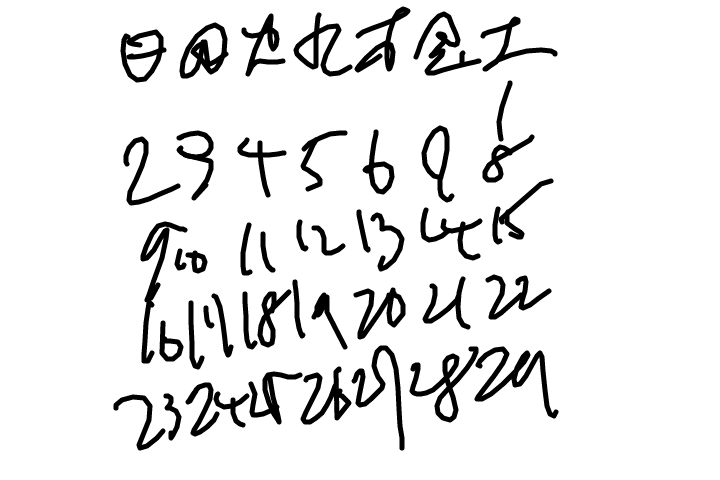 日 月 火 水 木 金 土
1
2 3 4 5 6 7 8
9 10 11 12 13 14 15
16 17 18 19 20 21 22
23 24 25 26 27 28 29